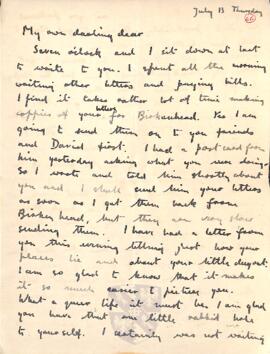 July 13 Thursday
66
My own darling dear
Seven o'clock and I sit down at last
to write to you. I spent all the morning
writing other letters and paying bills.
I find it takes rather lot of time making
copies of your letters for Birkenhead. Yes I am
going to send them on to you friends
and David first. I had a postcard from
him yesterday asking what you were doing.
So I wrote and told him shortly about
you and I shall send him your letters
as soon as I get them back from
Birkenhead, but they are very slow
sending them. I have had a letter from
you this evening telling just how your
places lie and about your little dugout.
I am so glad to know that it makes
it so much easier to picture you.
What a queer life it must be. I am glad
you have that one little rabbit hole
to yourself. I certainly was not writing